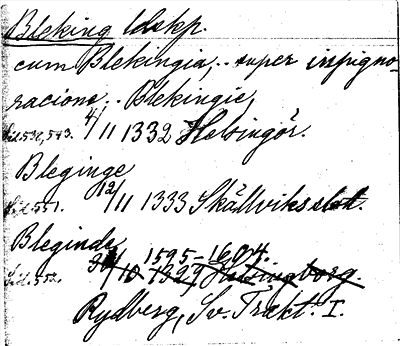 Bleking ldskp.
cum Blekingia,.. super inpigno-
racione.. Blekingie,
Sid. 538, 543. 4/11 1332 Helsingör.
Bleginge
Sid. 551. 12/11 1333 Skällviks slot.
Bleginde 1595-1604.
Sid. 553. /10 1327 Helsingborg.
Rydberg, Sv. Trakt. I.